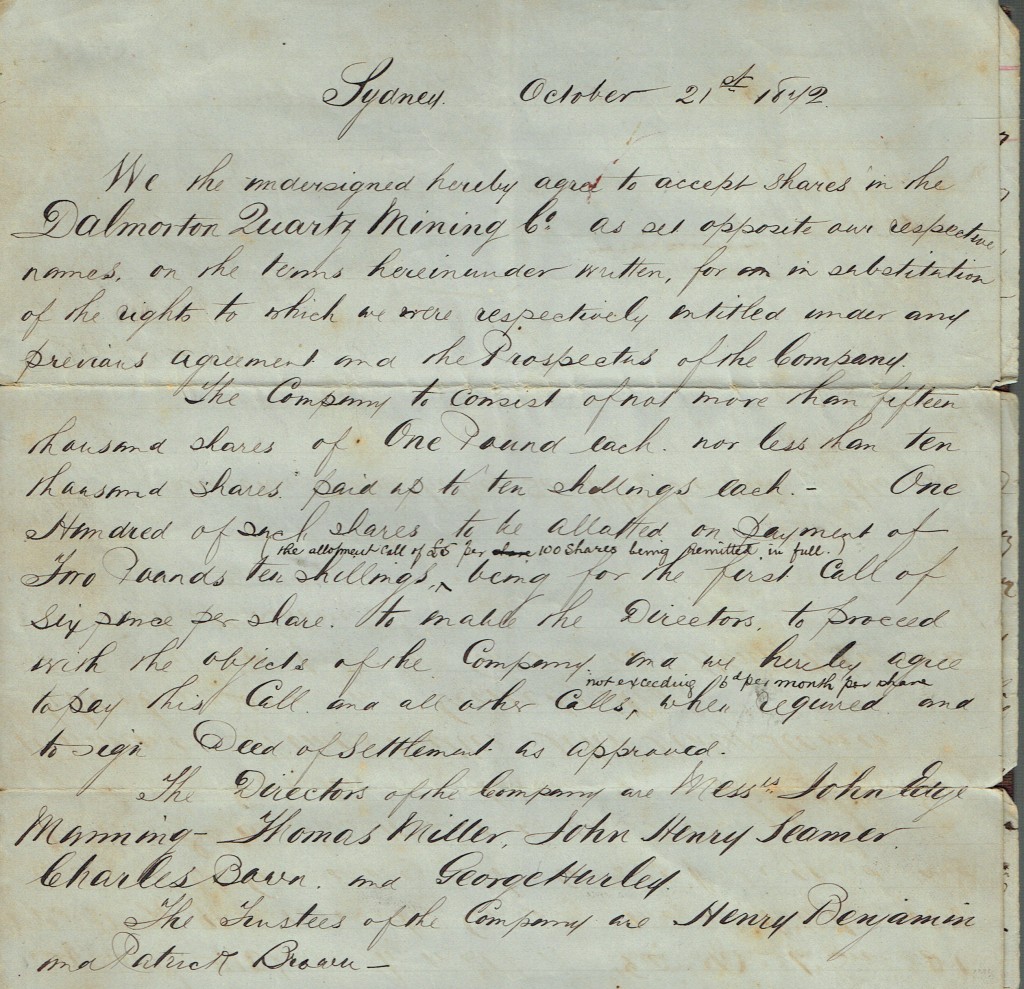 Sydney. October 21st 1872.
We the undersigned hereby agree to accept shares in the
Dalmorton Quartz Mining Co. as set opposite our respective
names, on the terms hereinunder written, for in substitution
of the rights to which we were respectively entitled under any
previous agreement and the Prospectus of the Company.
The Company to consist of not more than fifteen
thousand shares of One Pound each. nor less than ten
thousand shares paid up to ten shillings each.- One
Hundred of such shares to be allotted on payment of
(the allotment call of £5 per share 100 shares being remitted in full.)
Two Pounds ten shillings, being for the first Call of
six pence per share. to enable the Directors, to proceed
with the objects of the Company. and we hereby agree
not exceeding 6d per month per share
to pay this Call. and all other Calls, when required. and
to sign Deed of Settlement as approved.
The Directors of the Company are Messrs. John Edge
Manning - Thomas Miller, John Henry Seamer.
Charles Bown. and George Hurley.
The Trustees of the Company are Henry Benjamin
and Patrick Brown -